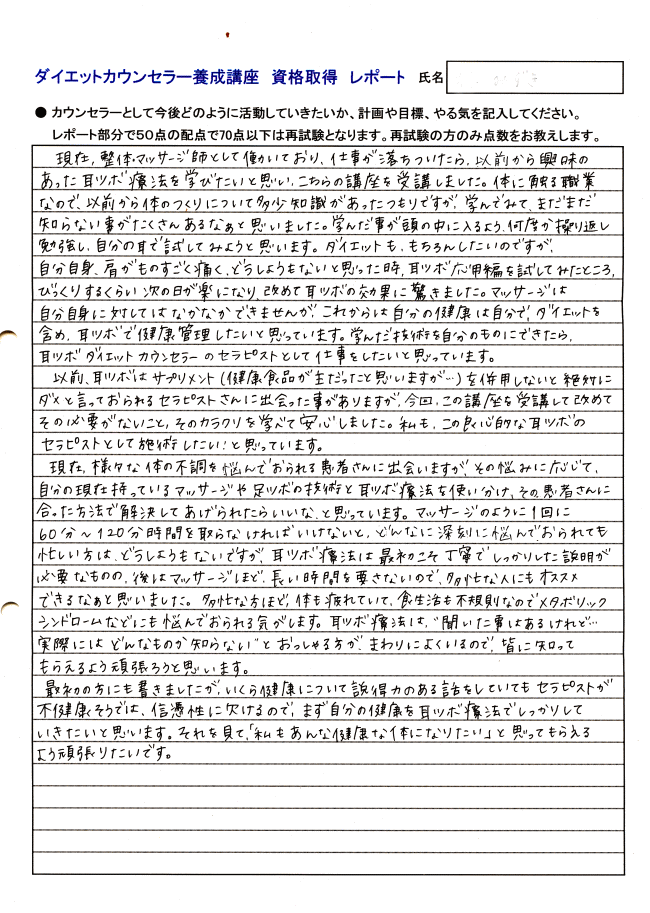 ダイエットカウンセラー養成講座 資格取得 レポート 氏名
● カウンセラーとして今後どのように活動していきたいか、計画や目標、やる気を記入してください。
レポート部分で50点の配点で70点以下は再試験となります。再試験の方のみ点数をお教えします。
現在、整体・マッサージ師として働いており、仕事が落ちついたら、以前から興味の
あった耳ツボ療法を学びたいと思い、こちらの講座を受講しました。体に触る職業
なので、以前から体のつくりについて多少知識があったつもりですが、学んでみて、まだまだ
知らない事がたくさんあるなぁと思いました。学んだ事が頭の中に入るよう、何度か繰り返し
勉強し、自分の耳で試してみようと思います。ダイエットも、もちろんしたいのですが、
自分自身、肩がものすごく痛く、どうしようもないと思った時、耳ツボ応用編を試してみたところ、
びっくりするくらい次の日が楽になり、改めて耳ツボの効果に驚きました。マッサージは
自分自身に対してはなかなかできませんが、これからは自分の健康は自分で、ダイエットを
含め、耳ツボで健康管理したいと思っています。学んだ技術を自分のものにできたら、
耳ツボダイエットカウンセラーのセラピストとして仕事をしたいと思っています。
以前、耳ツボはサプリメント(健康食品が主だったと思いますが…)を併用しないと絶対に
ダメと言っておられるセラピストさんに出会った事がありますが、今回、この講座を受講して改めて
その必要がないこと、そのカラクリを学べて安心しました。私も、この良心的な耳ツボの
セラピストとして施術したい!と思っています。
現在、様々な体の不調を悩んでおられる患者さんに出会いますが、その悩みに応じて、
自分の現在持っているマッサージや足ツボの技術と耳ツボ療法を使いわけ、その患者さんに
合った方法で解決してあげられたらいいな、と思っています。マッサージのように1回に
60分～120分時間を取らなければいけないと、どんなに深刻に悩んでおられても
忙しい方は、どうしようもないですが、耳ツボ療法は最初こそ丁寧でしっかりした説明が
必要なものの、後はマッサージほど、長い時間を要さないので、多忙な人にもオススメ
できるなぁと思いました。多忙な方ほど、体も疲れていて、食生活も不規則なのでメタボリック
シンドロームなどにも悩んでおられる気がします。耳ツボ療法は、“聞いた事はあるけれど…
実際にはどんなものか知らない”とおっしゃる方が、まわりによくいるので、皆に知って
もらえるよう頑張ろうと思います。
最初の方にも書きましたが、いくら健康について説得力のある話をしていてもセラピストが
不健康そうでは、信憑性に欠けるので、まず自分の健康を耳ツボ療法でしっかりして
いきたいと思います。それを見て、「私もあんな健康な体になりたい」と思ってもらえる
よう頑張りたいです。